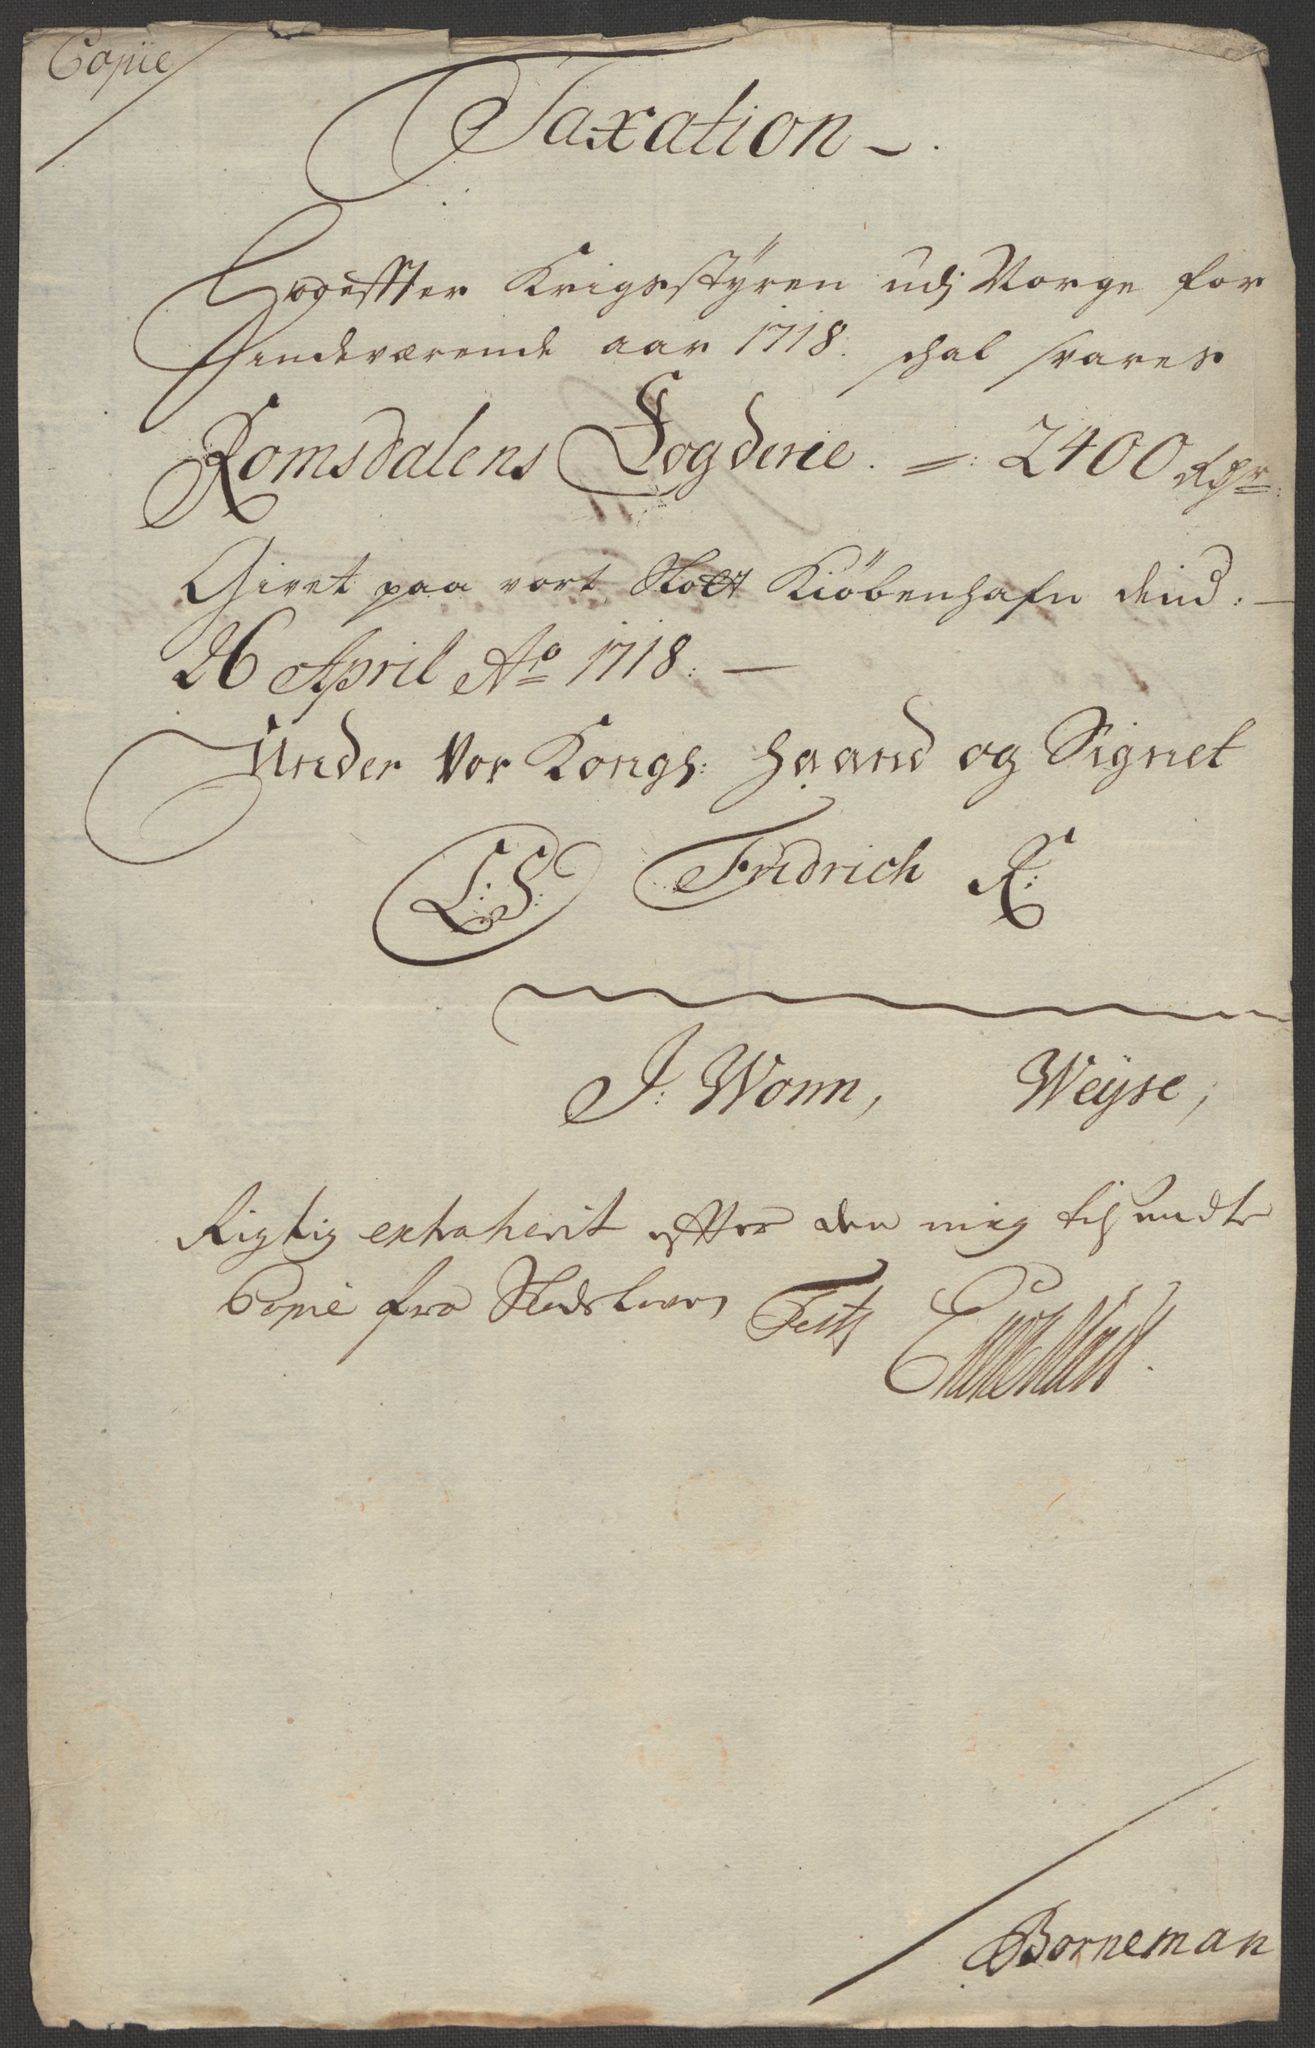 Copie
Taxation
Hvoreffter Krigsstÿren udj Norge for
Indeværende aar 1718. schal svares
Romsdalens Fogderie. =: 2400 Rdr:
Givet paa vort Slott Kiöbenhafn dend:
26 April Ao 1718:
Under Vor Kongs: Haand og Signet
L: S: Fridrich R:
J: Worm, Weÿse,
Rigtig extraherit efter den mig tilsendte
Copie fra
Borneman